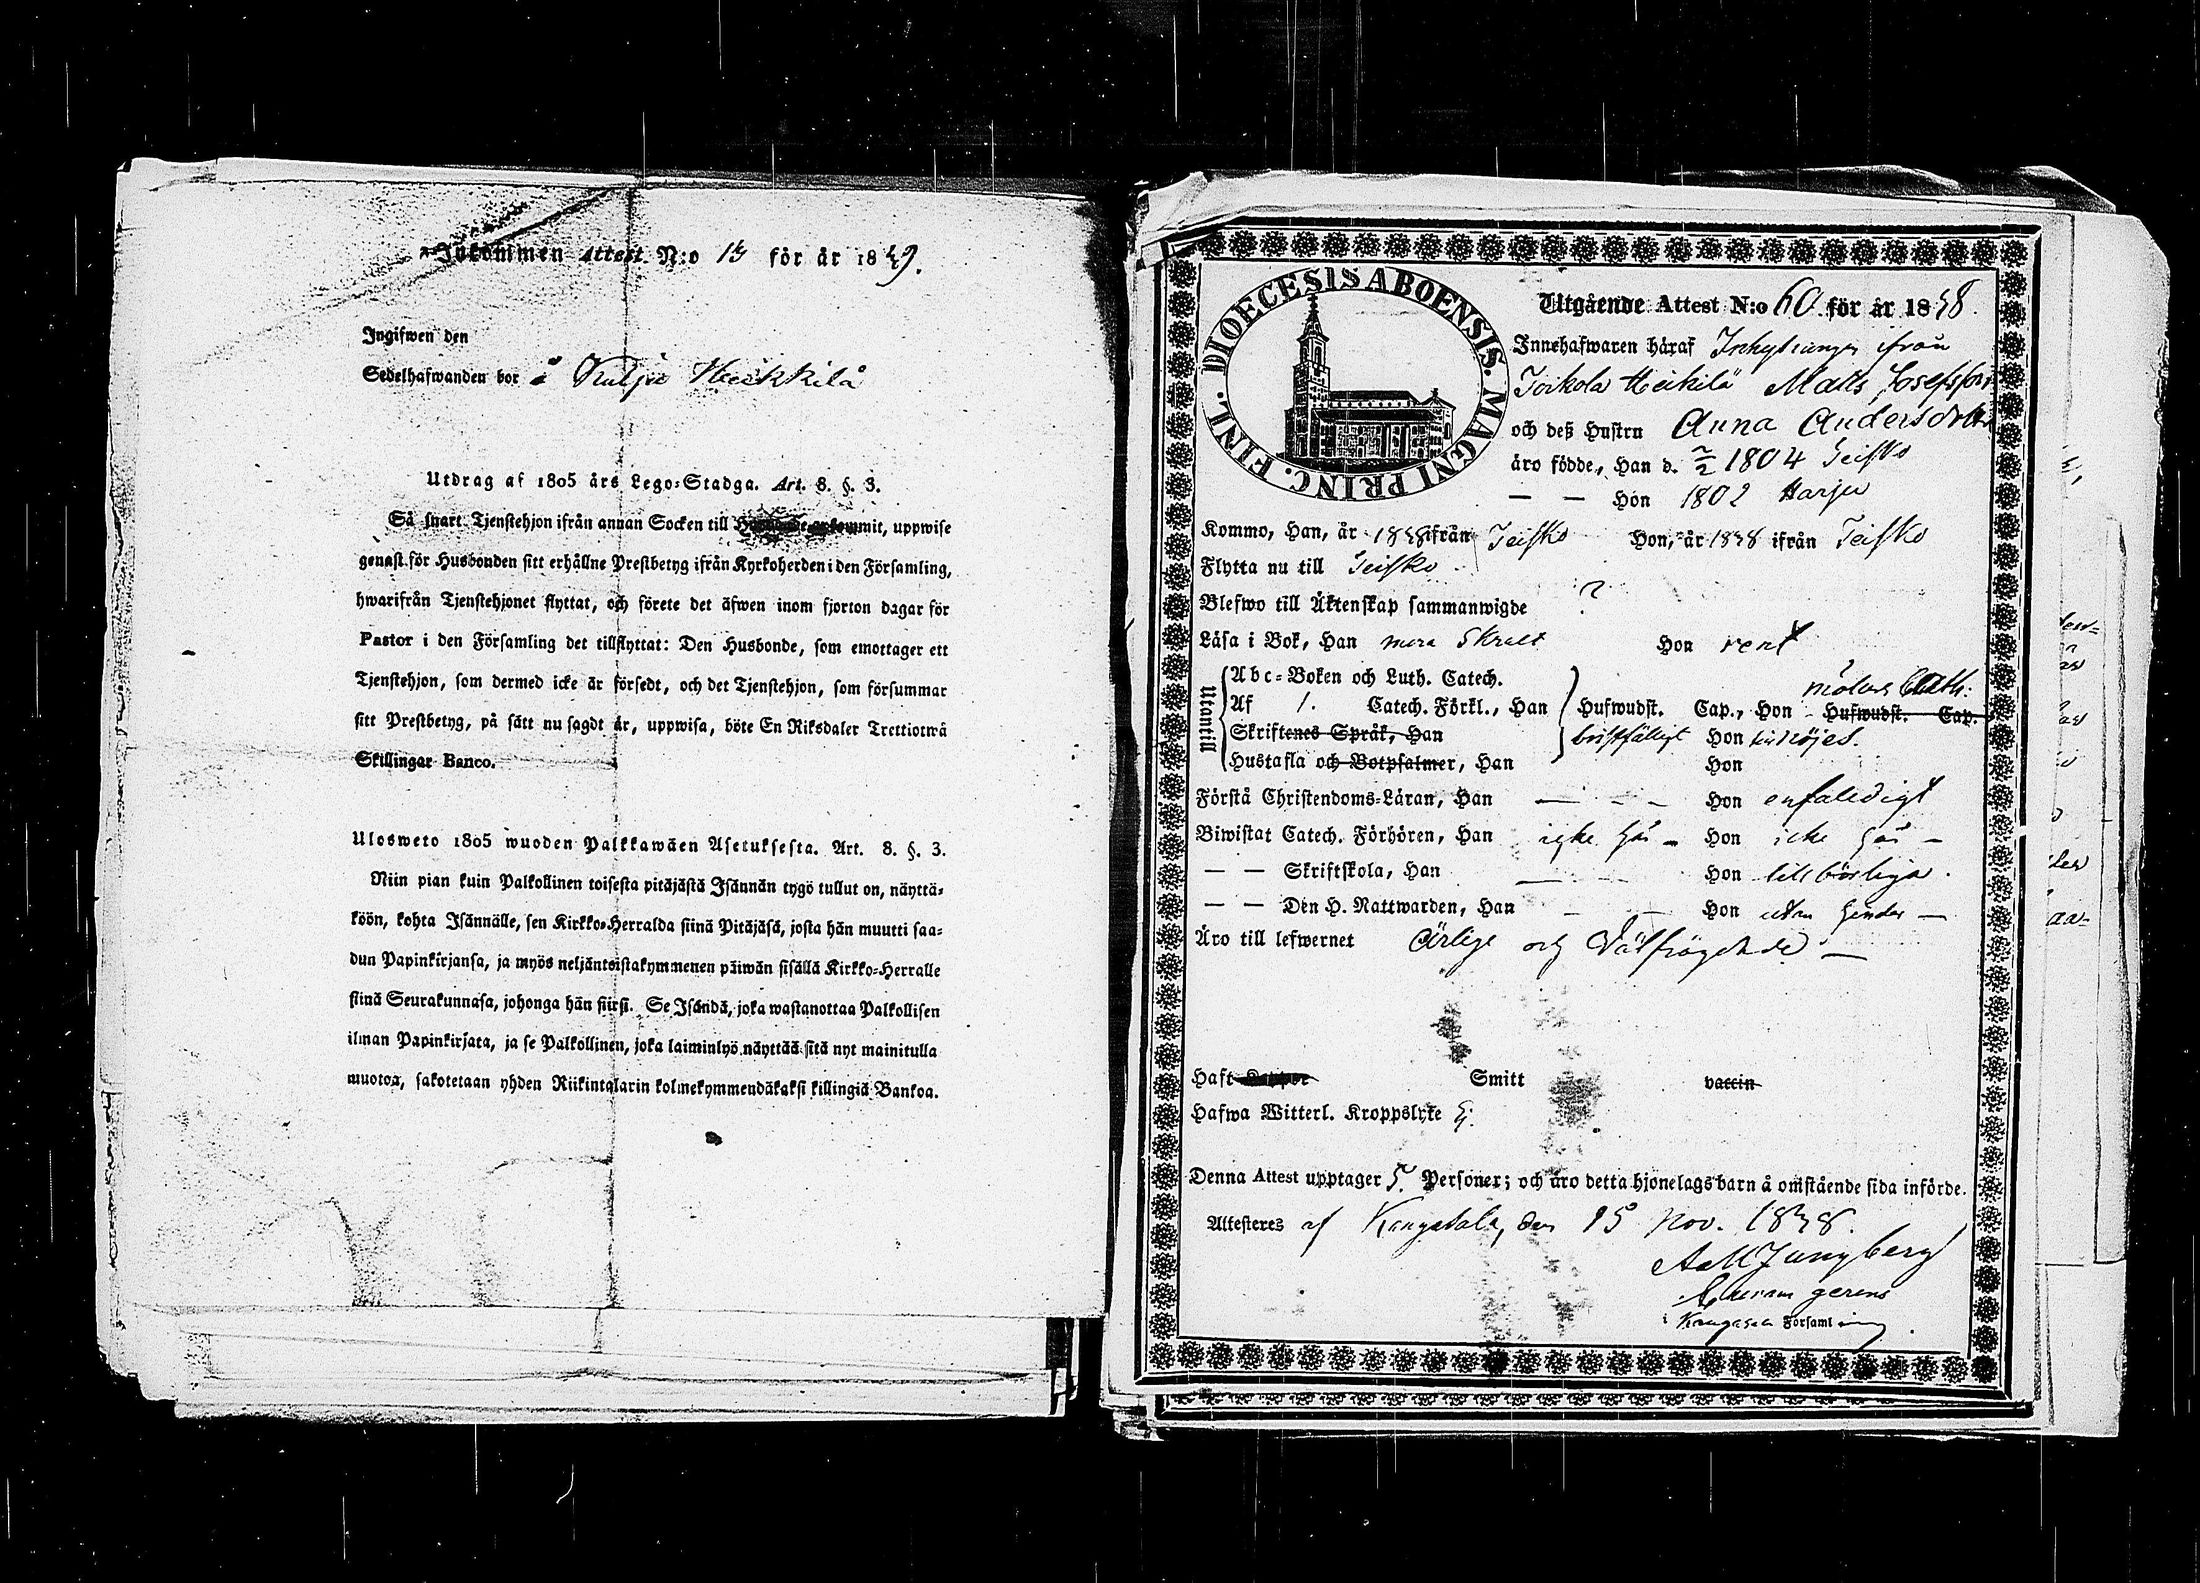 Inkommen Attest N:o 13 för år 1849.
Ingifwen den
Sedelhafwanden bor å Kulju Heikkilä
Utdrag af 1805 års Lego-Stadga. Art. 8. §. 3.
Så snart Tjenstehjon ifrån annan Socken till ankommit, uppwise
genast för Husbonden sitt erhållne Prestbetyg ifrån Kyrkoherden i den Församling,
hwarifrån Tjenstehjonet flyttat, och förete det äfwen inom fjorton dagar för
Pastor i den Församling det tillflyttat: Den Husbonde, som emottager ett
Tjenstehjon, som dermed icke är försedt, och det Tjenstehjon, som försummar
sitt Prestbetyg, på sätt nu sagdt är, uppwisa, böte En Riksdaler Trettiotwå
Skillingar Banco.
Ulosweto 1805 wuoden Palkkawäen Asetuksesta. Art. 8. §. 3.
Niin pian kuin Palkollinen toisesta pitäjästä Isännän tygö tullut on, näyttä-
köön, kohta Isännälle, sen Kirkko-Herralda siinä Pitäjäsä, josta hän muutti saa-
dun Papinkirjansa, ja myös neljäntoistakymmenen päiwän sisällä Kirkko-Herralle
siinä Seurakunnasa, johonga hän siirsi. Se Isändä, joka wastanottaa Palkollisen
ilman Papinkirjata, ja se Palkollinen, joka laiminlyö näyttää sitä nyt mainitulla
muotoa, sakotetaan yhden Riikintalarin kolmekymmendäkaksi killingiä Bankoa.
DIOECESIS ABOENSIS. MAGNI PRINC. FINL.
Utgående Attest N:o 60 för år 1848.
Innehafwaren häraf Inhysingen ifrån
Toikola Heikilä Matts Josefsson
och deß Hustru Anna Andersdotter
äro födde, Han d. 2/2 1804 Teisko
— — Hon 1802 Harju
Kommo, Han, år 1838 ifrån Teisko Hon, år 1838 ifrån Teisko
Flytta nu till Teisko
Blefwo till Äktenskap sammanwigde ?
Läsa i Bok, Han mera Skralt Hon rent
Utantill
Abc-Boken och Luth. Catech.
Af 1. Catech. Förkl., Han Hufwudst. Cap., Hon Hufwudst. Cap.
Skriftenes Språk, Han bristfälligt Hon
Hustafla och Botpsalmer, Han Hon
Förstå Christendoms-Läran, Han — - - Hon enfaldigt
Biwistat Catech. Förhören, Han icke här - Hon icke här -
— — Skriftskola, Han — - - Hon tillbörliga.
— — Den H. Nattwarden, Han - - Hon utan hinder —
Äro till lefwernet Ärlige och Välfrägdade —
Haft Koppor Smitt vaccin
Hafwa Witterl. Kroppslyte Ej.
Denna Attest upptager 5. Personer; och äro detta hjonelags barn å omstående sida införde.
Attesteres af Kangasala, den 15 Nov. 1848.
A M Jungberg
Curam gerens
i Kangasala Församling